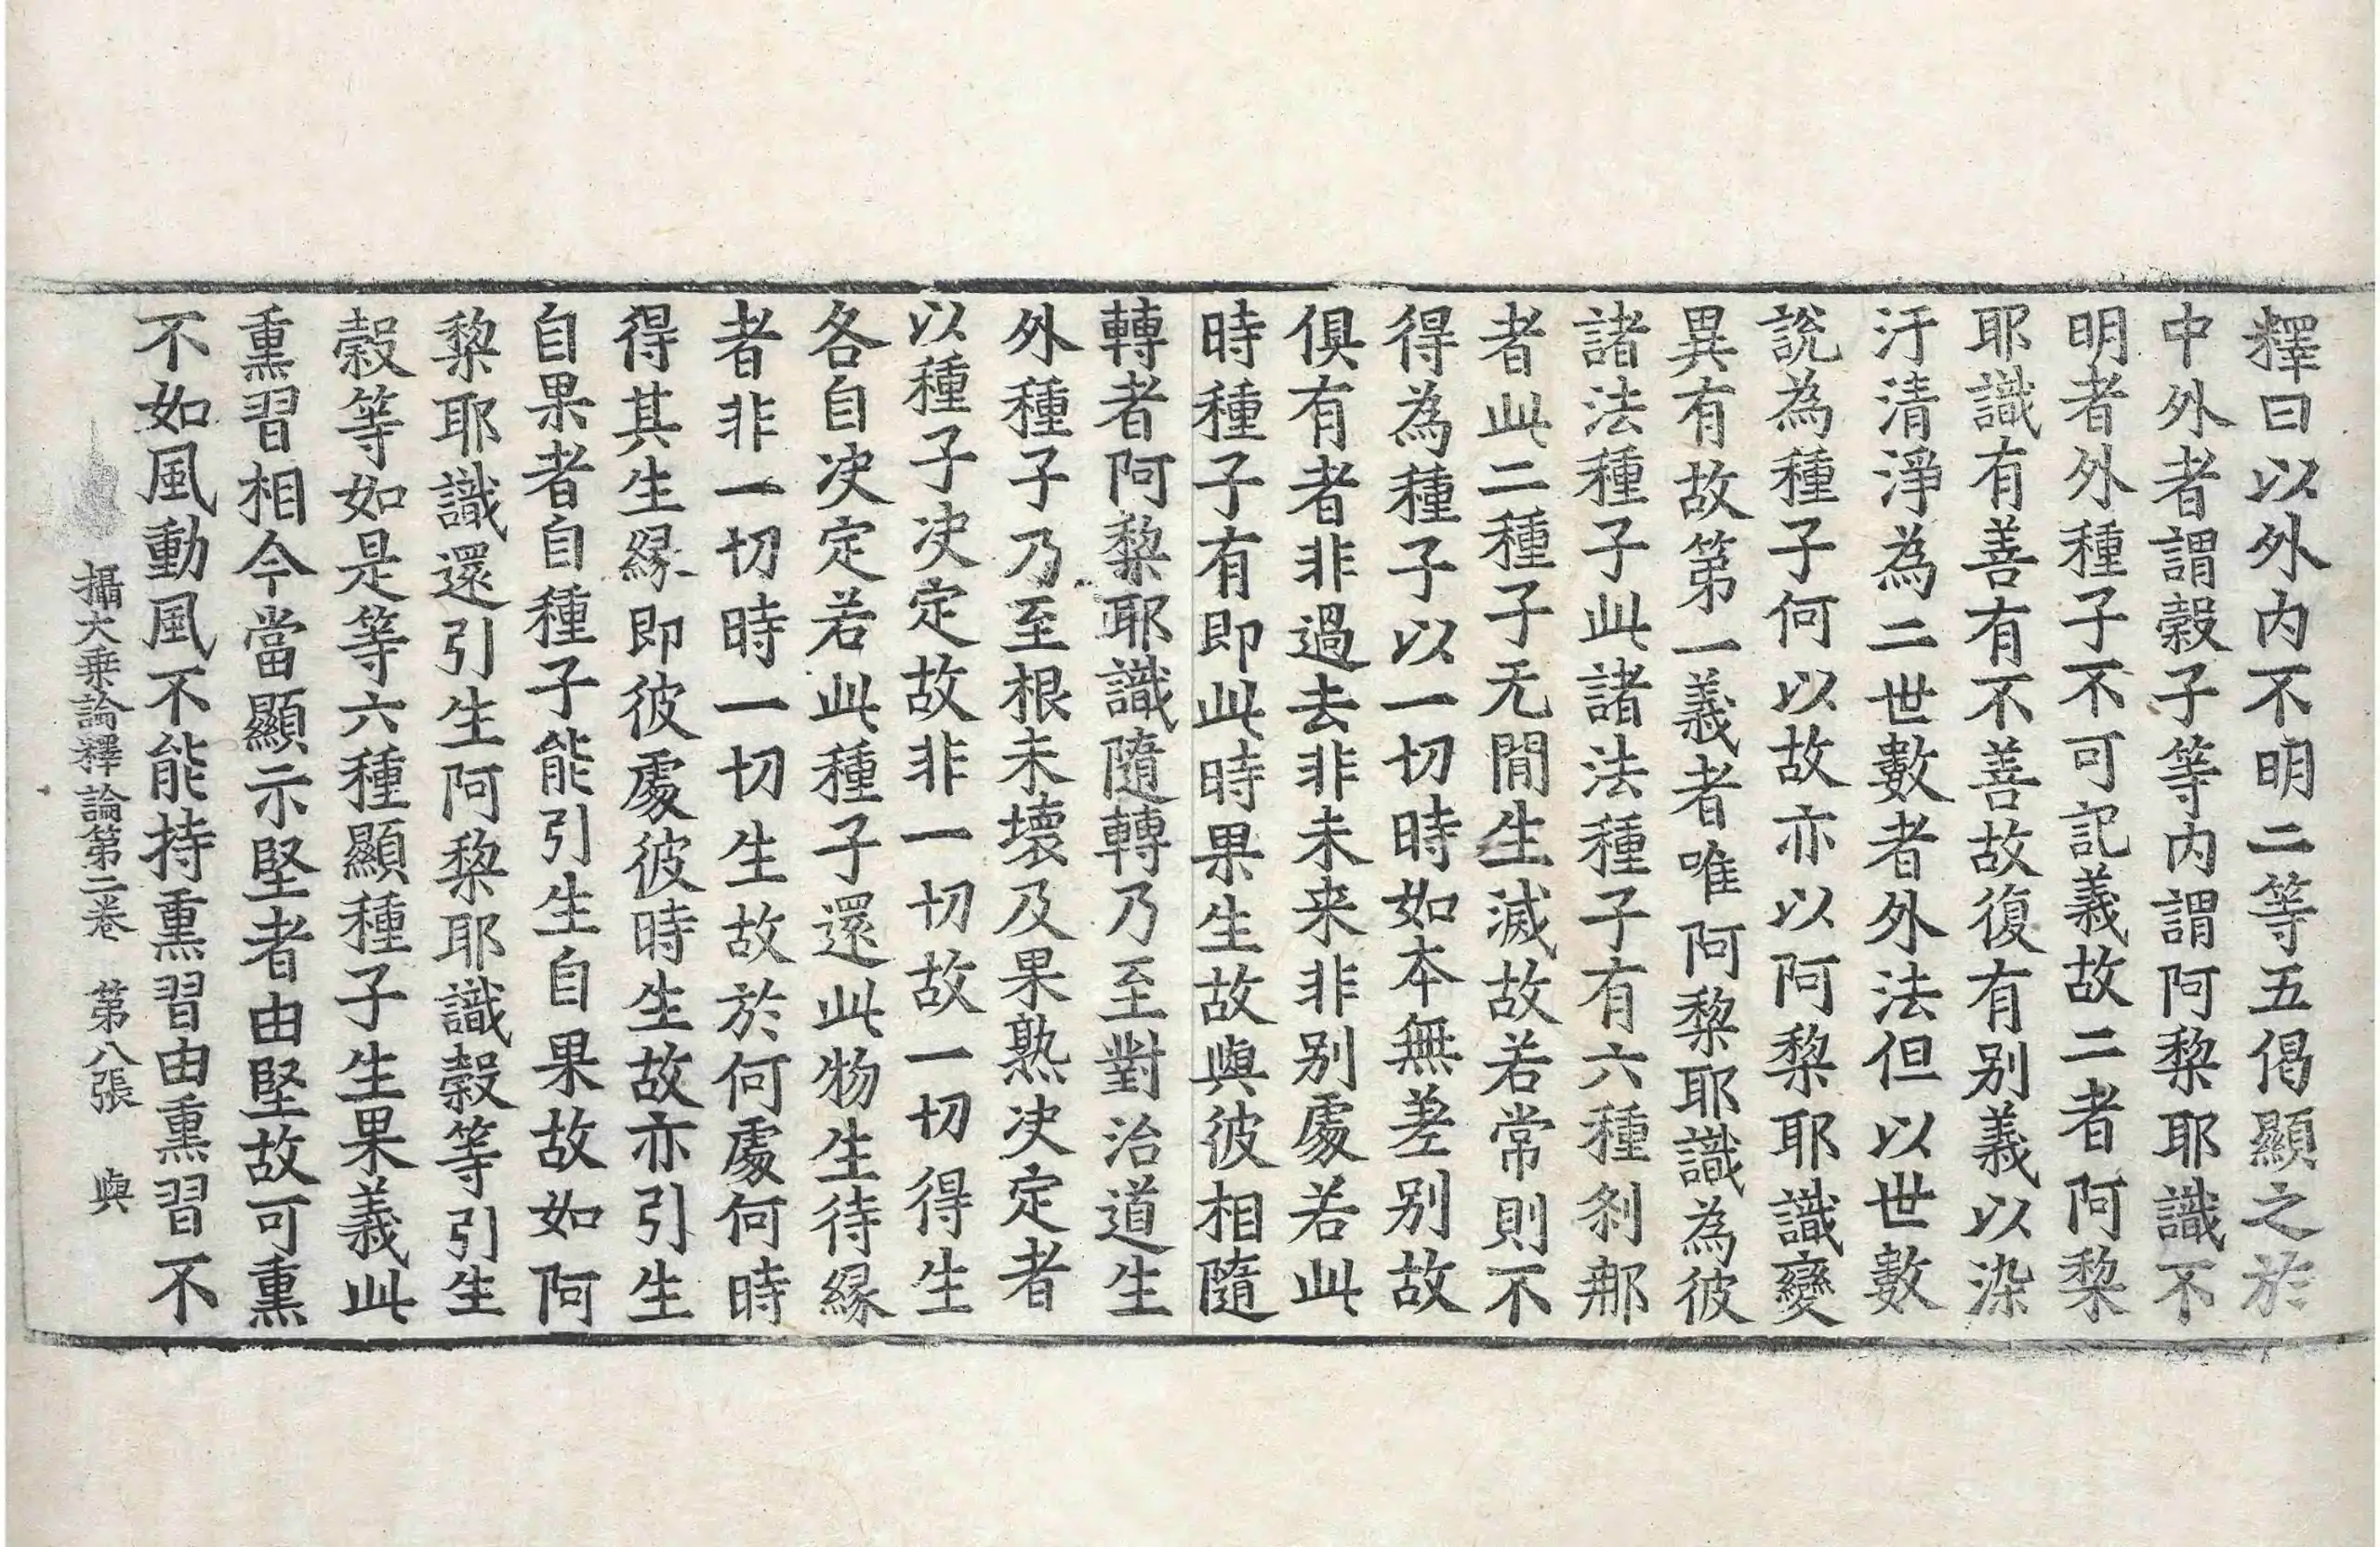 釋曰以外内不明二等五偈顯之於
中外者謂穀子等内謂阿黎耶識不
明者外種子不可記義故二者阿黎
耶識有善有不善故復有别義以染
汙清淨為二世數者外法但以世數
說為種子何以故亦以阿黎耶識變
異有故第一義者唯阿黎耶識為彼
諸法種子此諸法種子有六種刹那
者此二種子无間生滅故若常則不
得為種子以一切時如本無差别故
俱有者非過去非未来非别處若此
時種子有即此時果生故與彼相隨
轉者阿黎耶識隨轉乃至對治道生
外種子乃至根未壞及果熟决定者
以種子决定故非一切故一切得生
各自决定若此種子還此物生待緣
者非一切時一切生故於何處何時
得其生緣即彼處彼時生故亦引生
自果者自種子能引生自果故如阿
黎耶識還引生阿黎耶識穀等引生
穀等如是等六種顯種子生果義此
熏習相今當顯示堅者由堅故可熏
不如風動風不能持熏習由熏習不
攝大乗論釋論第二卷　第八張　與